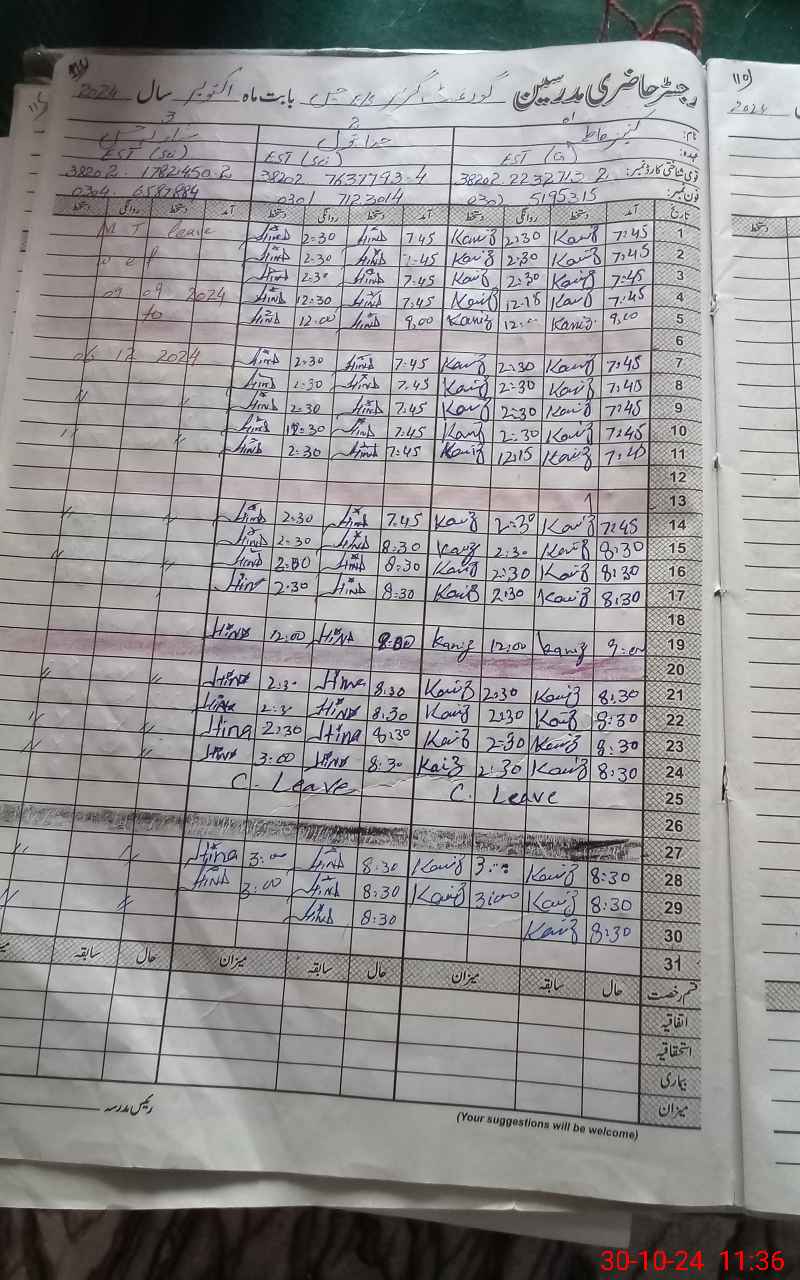 رجسٹر حاضری مدرسین گورنمنٹ گرلز بابت ماہ اکتوبر سال 2024
1 2 3
نام: کنیز فاطمہ حنا بتول
عہدہ: EST (G) EST (Sci) EST (Sci)
قومی شناختی کارڈ نمبر: 38202 2232713 2 38202 7637793-4 38202. 1782450.2
فون نمبر: 0301 5195315 0301 7123014 0304 6587884
تاریخ آمد دستخط روانگی دستخط آمد دستخط روانگی دستخط آمد دستخط روانگی دستخط
1 7:45 Kaniz 2:30 Kaniz 7.45 HINA 2:30 HINA M T leave
2 7:45 Kaniz 2:30 Kaniz 7.45 HINA 2:30 HINA w e f
3 7:45 Kaniz 2:30 Kaniz 7.45 HINA 2:30 HINA
4 7:45 Kaniz 12-15 Kaniz 7.45 HINA 12:30 HINA 09 09 2024
5 9,00 Kaniz 12:00 Kaniz 9,00 HINA 12:00 HINA to
6
7 7:45 Kaniz 2:30 Kaniz 7.45 HINA 2:30 HINA 06 12 2024
8 7:45 Kaniz 2:30 Kaniz 7.45 HINA 2:30 HINA
9 7:45 Kaniz 2:30 Kaniz 7.45 HINA 2:30 HINA " "
10 7:45 Kaniz 2:30 Kaniz 7.45 HINA 12:30 HINA " "
11 7:45 Kaniz 12:15 Kaniz 7:45 HINA 2:30 HINA
12
13
14 7:45 Kaniz 2:30 Kaniz 7.45 HINA 2:30 HINA " "
15 8:30 Kaniz 2:30 Kaniz 8:30 HINA 2:30 HINA
16 8:30 Kaniz 2:30 Kaniz 8:30 HINA 2:30 HINA " "
17 8:30 Kaniz 2:30 Kaniz 8:30 HINA 2:30 Hin
18
19 9:00 Kaniz 12:00 Kaniz 9:00 HINA 12:00 HINA
20
21 8:30 Kaniz 2:30 Kaniz 8:30 Hina 2:30 HINA " "
22 8:30 Kaniz 2:30 Kaniz 8:30 HINA 2:30 HINA
23 8:30 Kaniz 2:30 Kaniz 8:30 Hina 2:30 Hina " "
24 8:30 Kaniz 2:30 Kaiz 8:30 HINA 3:00 HINA " "
25 C. Leave C. Leave
26
27
28 8:30 Kaniz 3:00 Kaniz 8:30 HINA 3:00 Hina " "
29 8:30 Kaniz 3:00 Kaniz 8:30 HINA 3:00 HINA
30 8:30 Kaniz 8:30 HINA " "
31
قسم رخصت حال سابقہ میزان حال سابقہ میزان حال سابقہ
اتفاقیہ
استحقاقیہ
بیماری
میزان
رئیس مدرسہ
(Your suggestions will be welcome)
2024
30-10-24 11:36